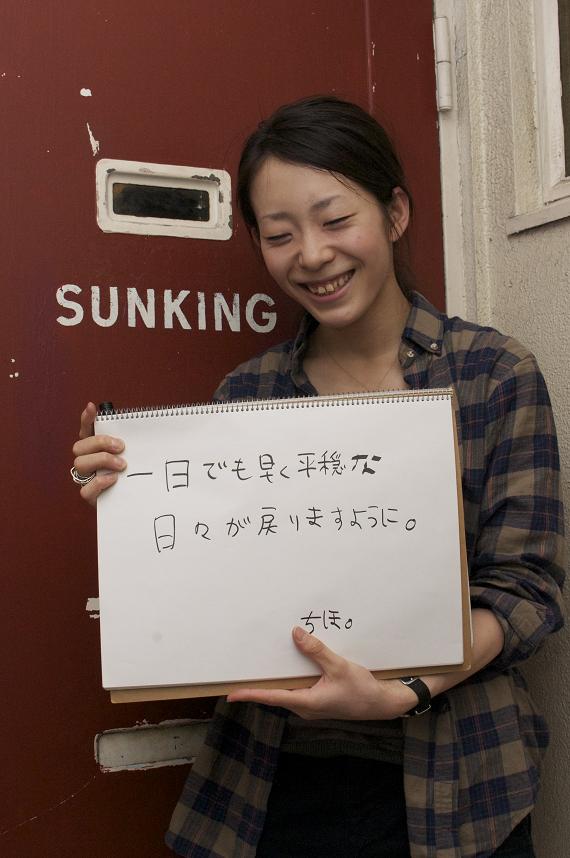 SUNKING
一日でも早く平穏な
日々が戻りますように。
ちほ。